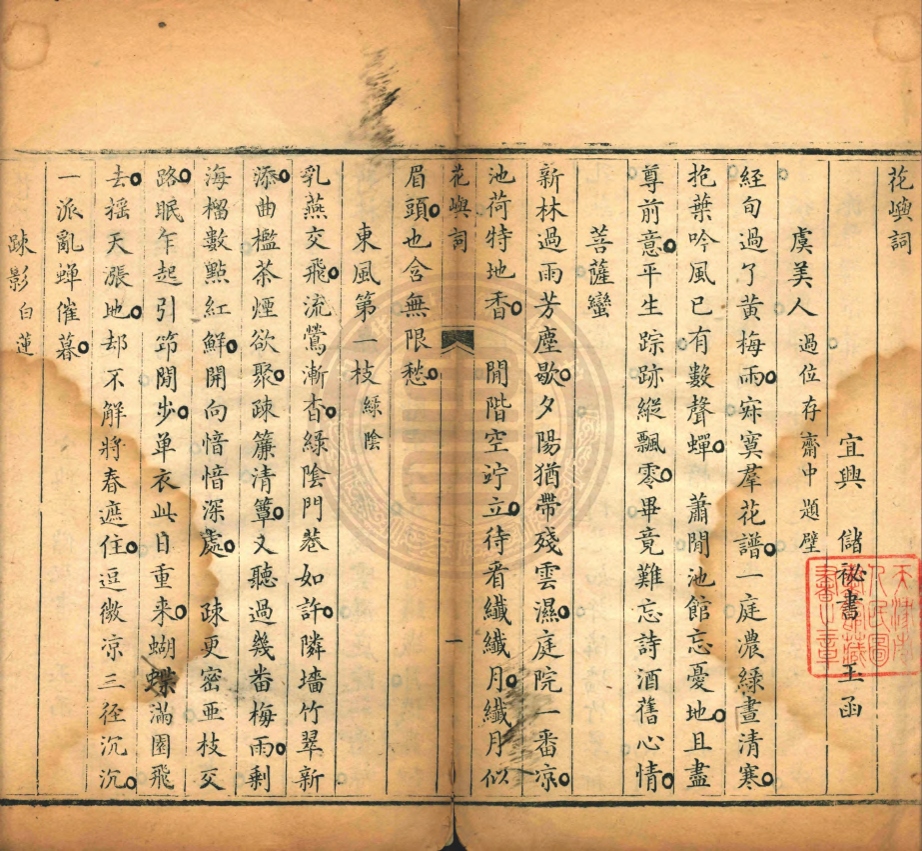 花嶼詞
宜興　儲祕書　玉函
虞美人　過位存齋中題壁
經旬過了黃梅雨寂寞羣花譜一庭濃綠晝清寒
抱葉吟風已有數聲蟬　蕭閒池館忘憂地且盡
尊前意平生踪跡縱飄零畢竟難忘詩酒舊心情
菩薩蠻
新林過雨芳塵歇夕陽猶帶殘雲濕庭院一番凉
池荷特地香　閒階空竚立待看纖纖月纖月似
花嶼詞　一
眉頭也含無限愁
東風第一枝　綠陰
乳燕交飛流鶯漸杳綠陰門巷如許隣墻竹翠新
添曲檻茶煙欲聚疎簾清簟又聽過幾畨梅雨剩
海榴數點紅鮮開向愔愔深處　疎更密亞枝交
路眠乍起引笻閒步单衣此日重来蝴蝶滿園飛
去摇天漲地却不解將春遮住逗微凉三径沉沉
一派亂蝉催暮
疎影　白蓮
天津市
人民圖
書館藏
書之章